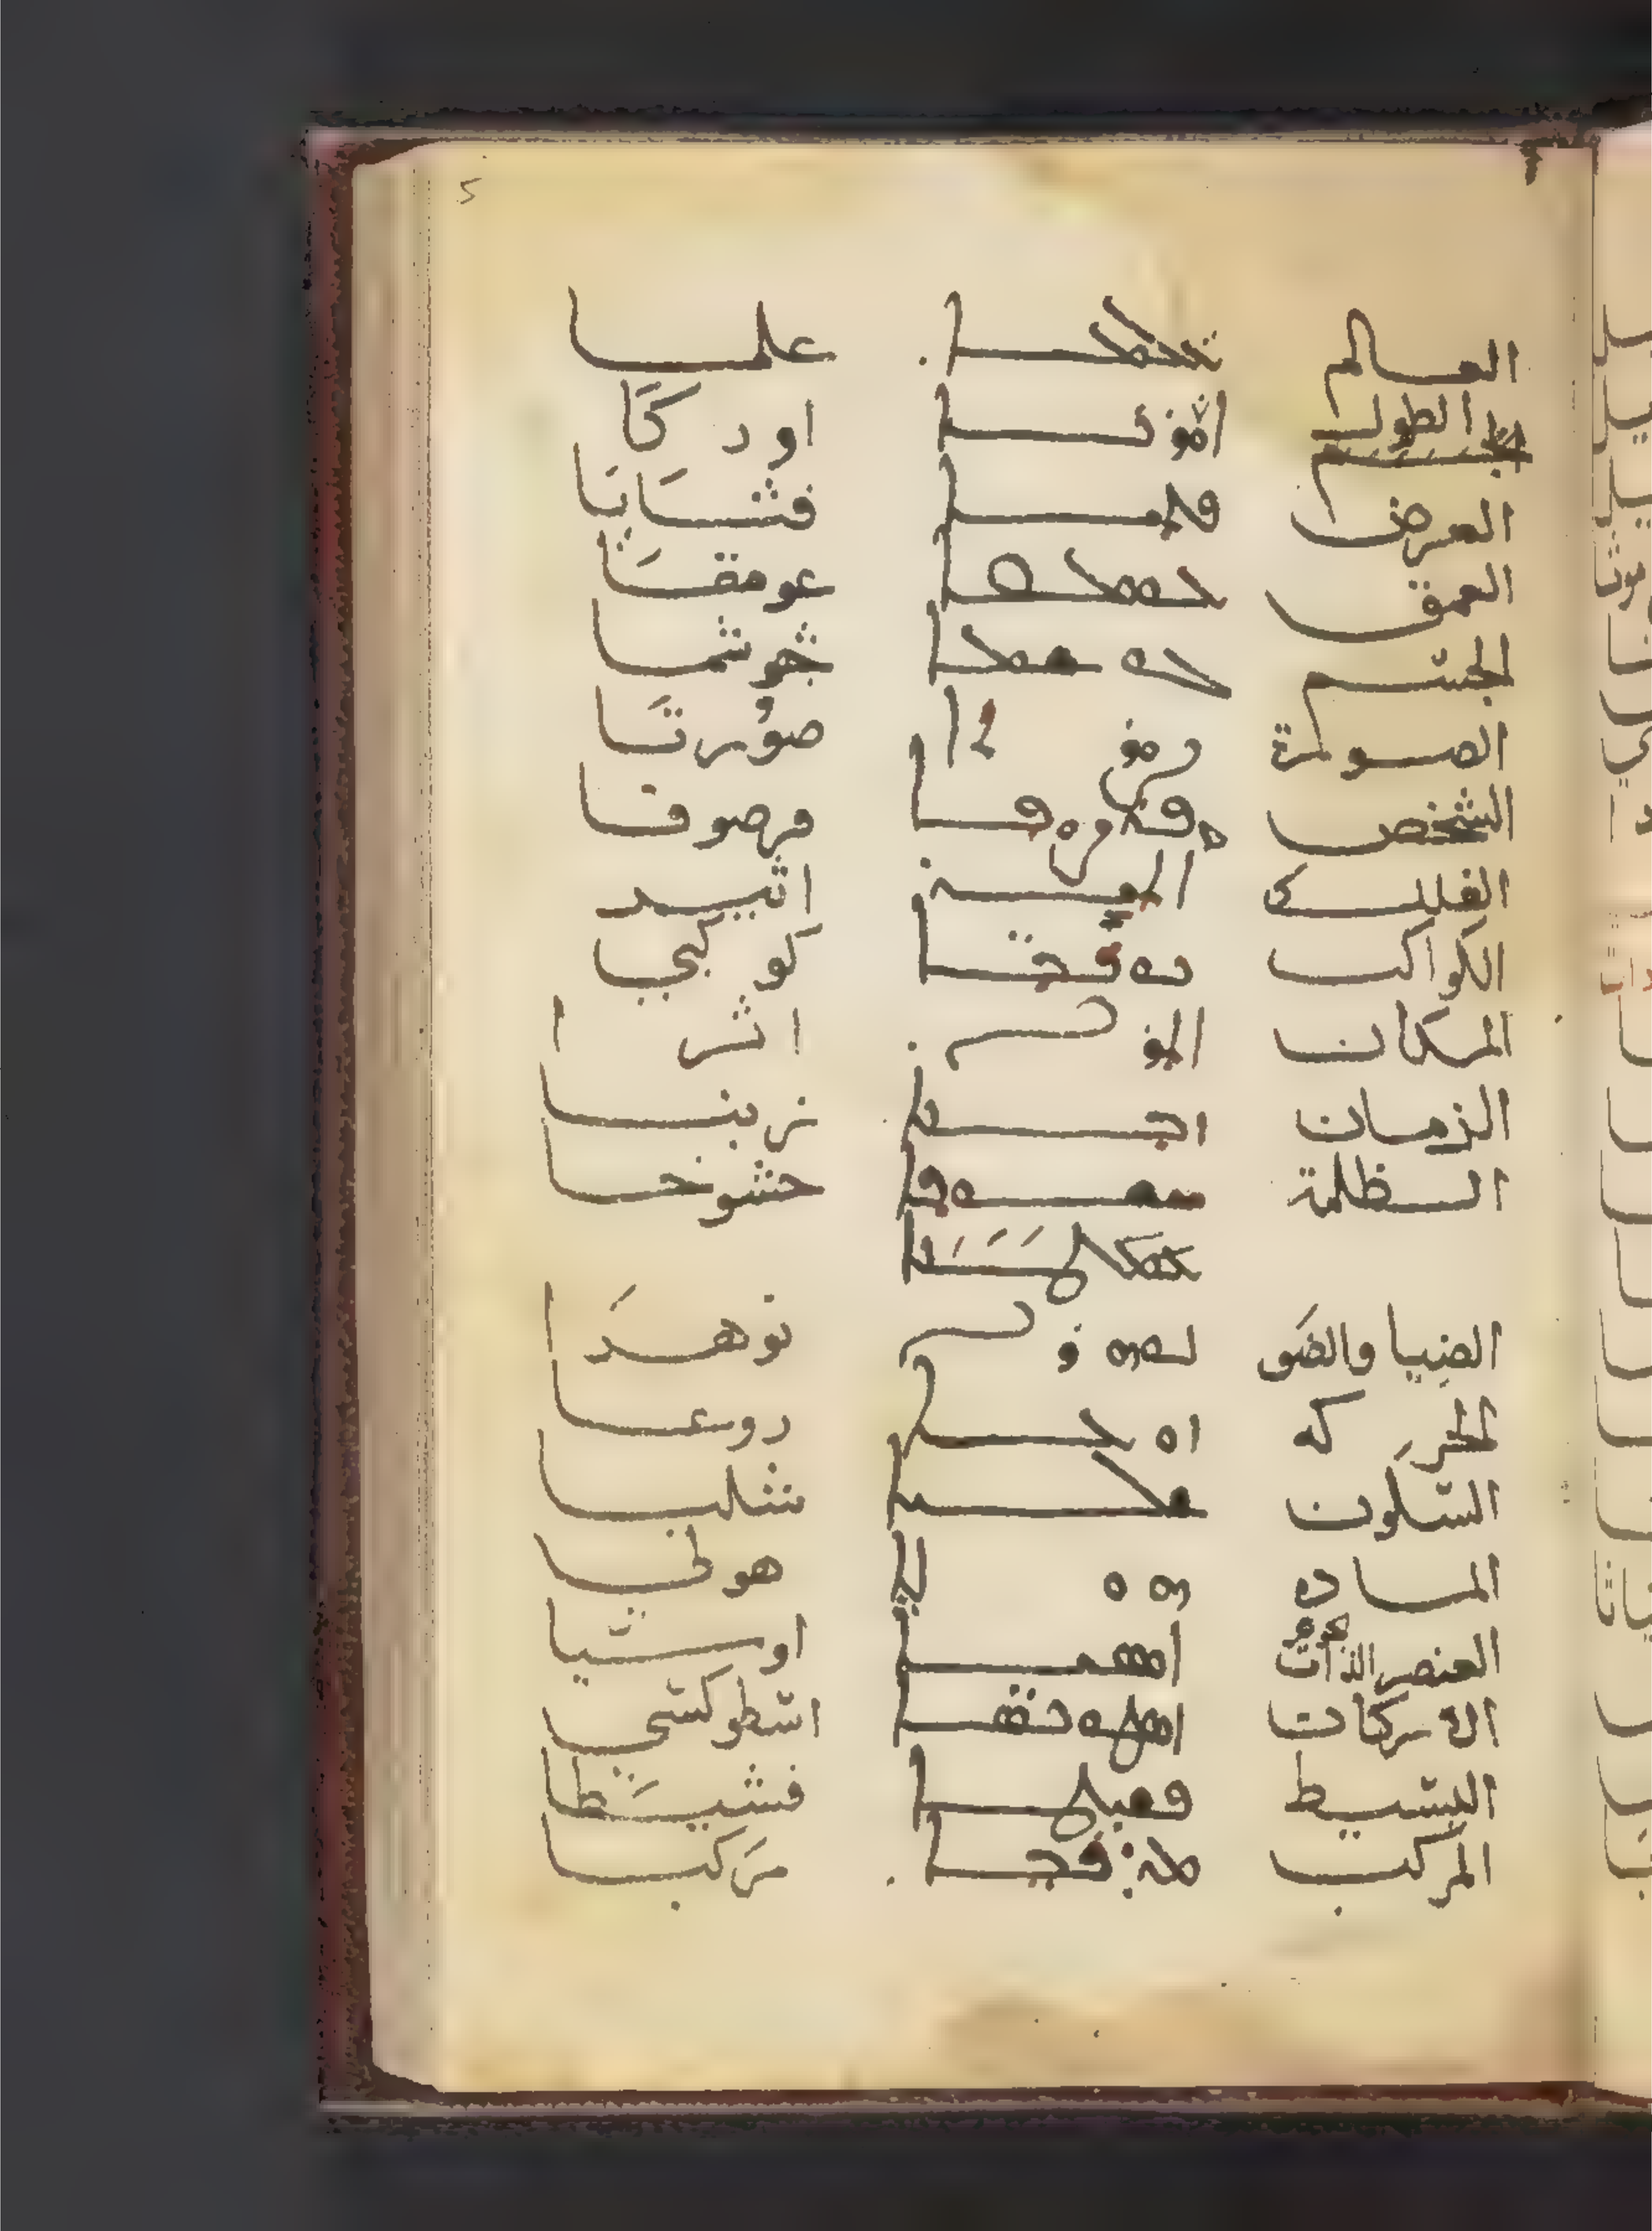 العالم ܥܠܡܐ علما
الطول ܐܘܪܟܐ اوركَا
العرض ܦܬܝܐ فثَايَا
العمق ܥܘܡܩܐ عومقَا
الجسم ܓܘܫܡܐ جوشما
الصورة ܨܘܪܬܐ صُورتَا
الشخص ܦܪܨܘܦܐ فرصوفا
الفلك ܐܬܝܪ اثيير
الكواكب ܟܘܟܒ̈ܐ كوكبي
المكان ܐܬܪܐ اثرا
الزمان ܙܒܢܐ زبنا
الظلمة ܚܫܘܟܐ حشوخا
ܥܡܛܢܐ
الضيا والضو ܢܘܗܪܐ نوهرَا
الحركه ܙܘܥܐ زوعا
السكون ܫܠܝܐ شليا
الماده ܗܘܠܐ هولي
العنصر الذات ܐܘܣܝܐ اوسيا
الاركان ܐܣܛܘܟܣ̈ܐ اسطوكسي
البسيط ܦܫܝܛܐ فشيطَا
المركب ܡܪܟܒܐ مَركبا